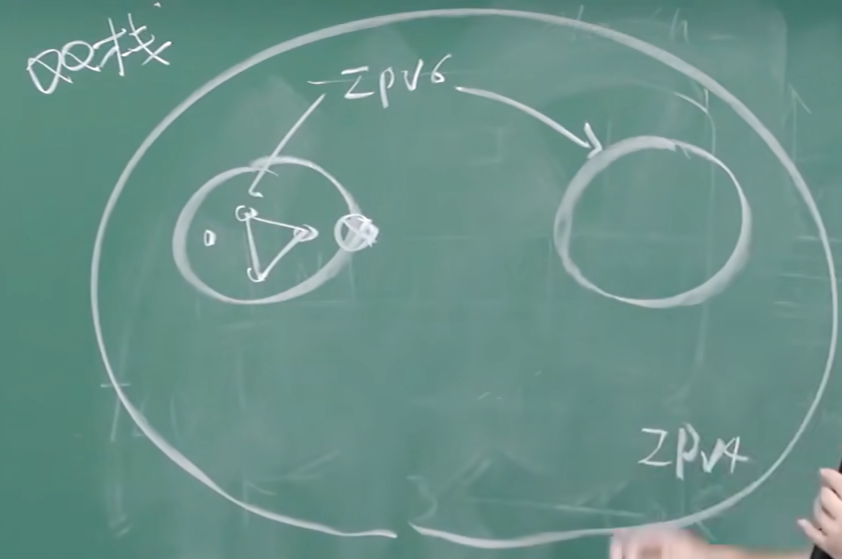 双栈
IPv6
IPv4